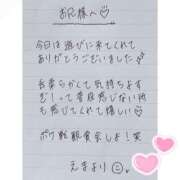 お兄様へ♡
今日は遊びに来てくれて
ありがとうございました
舌柔らかくて気持ちよす
普段感じない所
も感じてくれて嬉しい♡
ボク 観賞会しよし笑
えまより☺